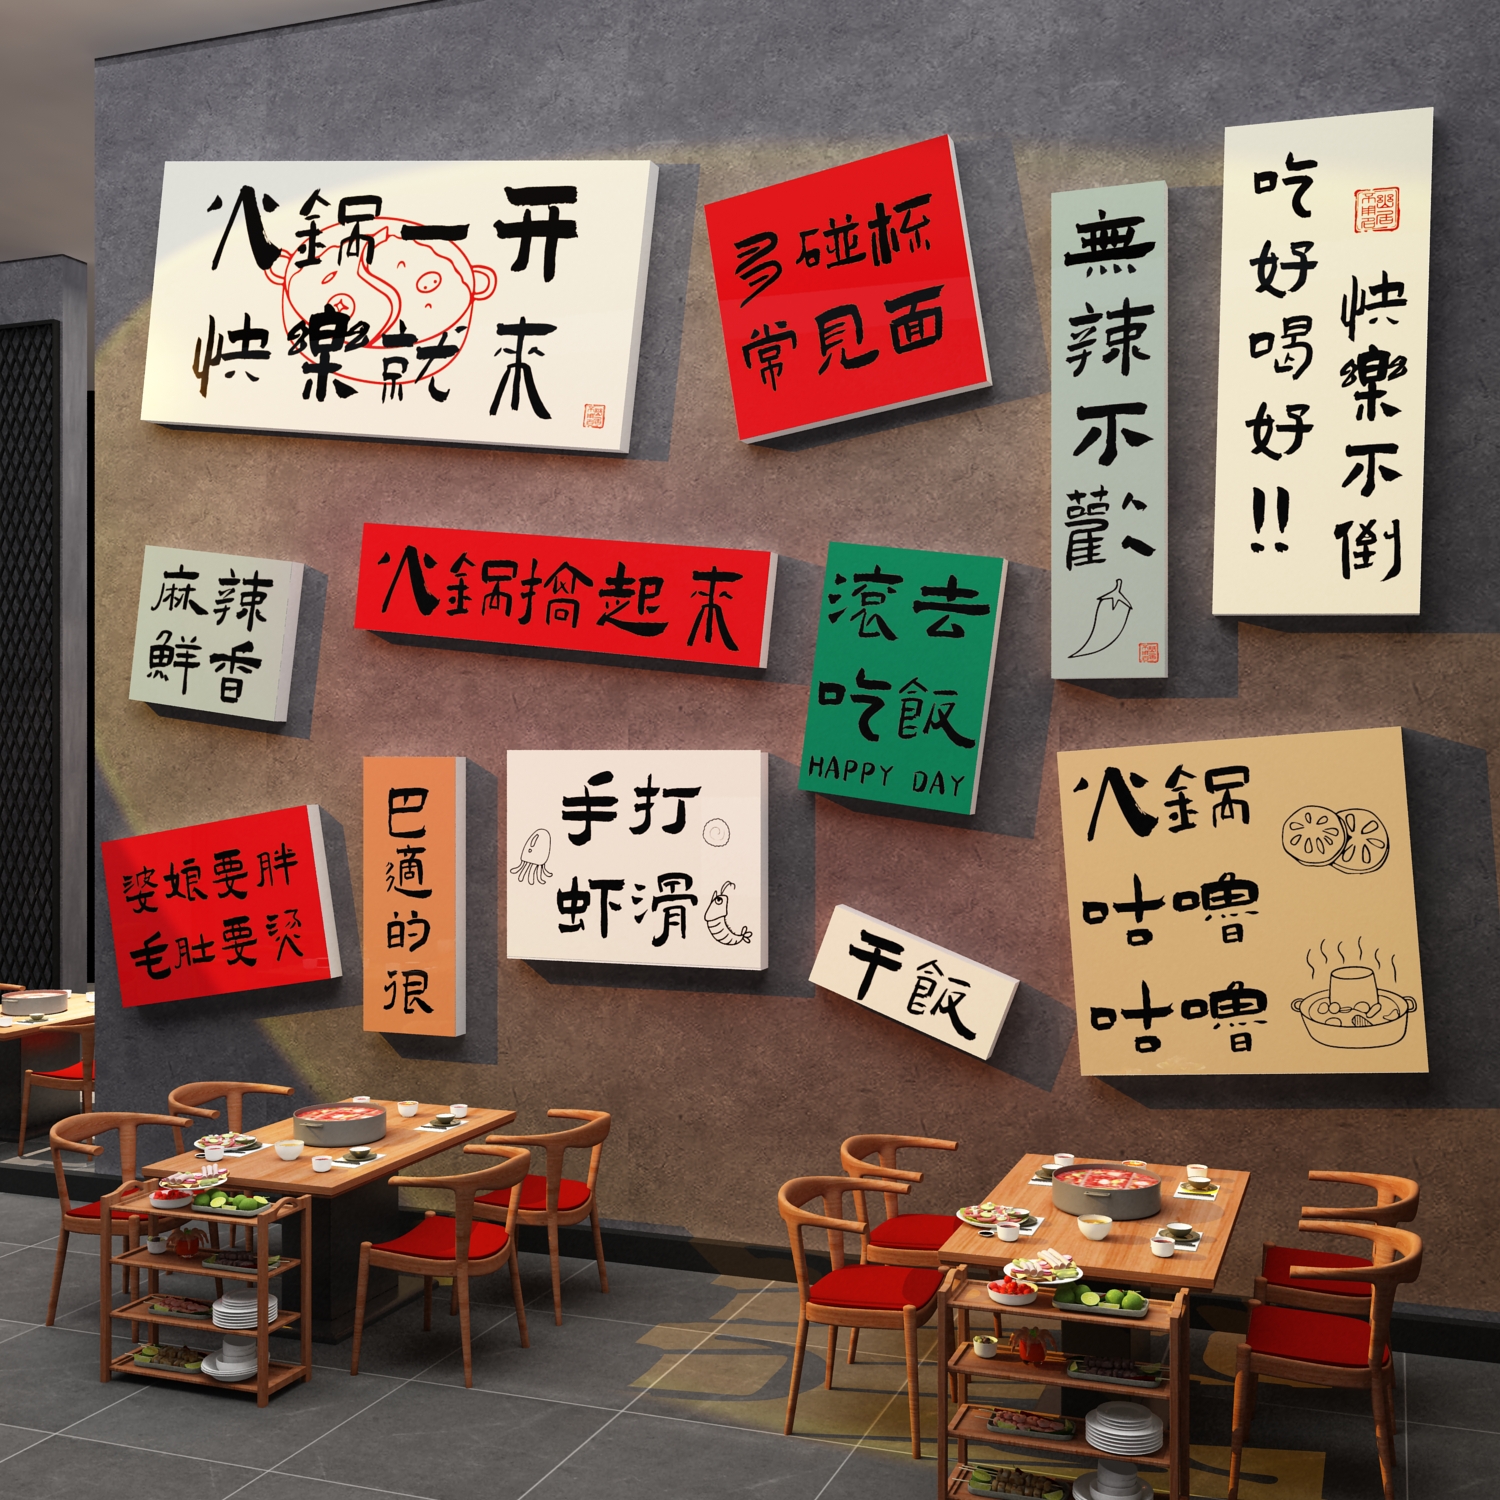 火鍋一开
快樂就来
多碰杯
常見面
無辣不歡
吃好喝好!!
快樂不倒
麻辣
鮮香
火鍋搞起来
滚去
吃飯
HAPPY DAY
婆娘要胖
毛肚要烫
巴適的很
手打
虾滑
干飯
火鍋
咕嚕
咕嚕